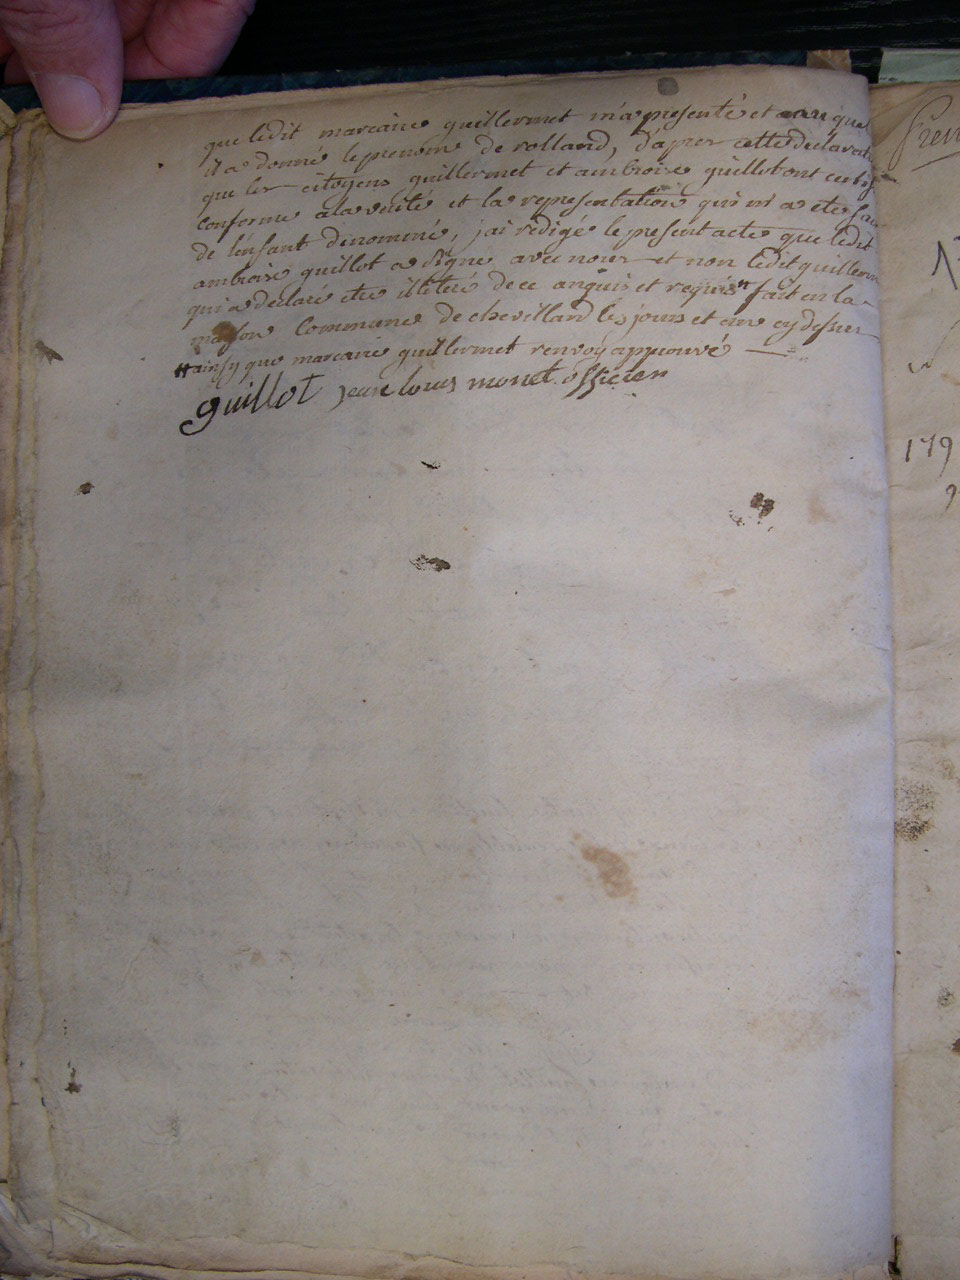 que ledit marcaire guillermet m'a presenté et auquel
il a donné le prenom de rolland, d'apres cette declarati
que les citoyens guillermet et ambroise guillot ont certif
conforme a la verité et la representation qui m'a ete fai
de l'enfant denommé, j'ai redigé le present acte que ledit
ambroise guillot a signe avec nous et non ledit guillerm
qui a declaré etre illiteré de ce anquis et requis # fait en la
maison commune de chevilland les jours et an cy dessus
# ainsy que marcaire guillermet renvoy approuvé
guillot jean louis monet officier
179